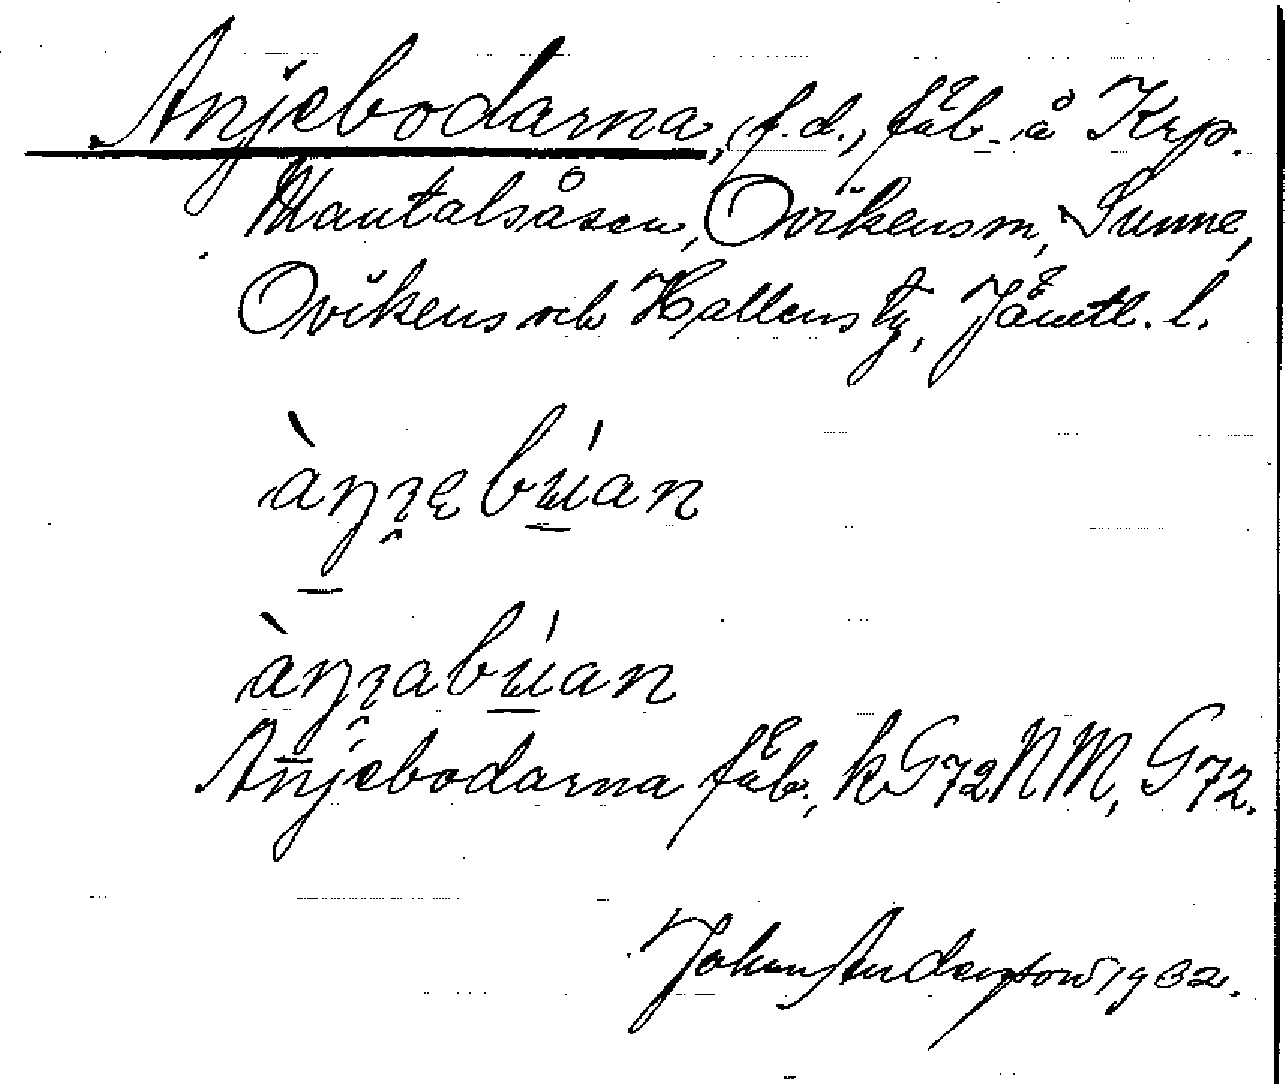 Anjebodarna, (f.d., fäb. å Krp.
Mantalsåsen, Ovikensm, Sunne,
Ovikens och Hallens tg, Jämtl. l.
àŋʒębú̲an
àŋʒabú̲an
Anjebodarna fäb., kG72NM, G72.
Johan Anderson 1932.